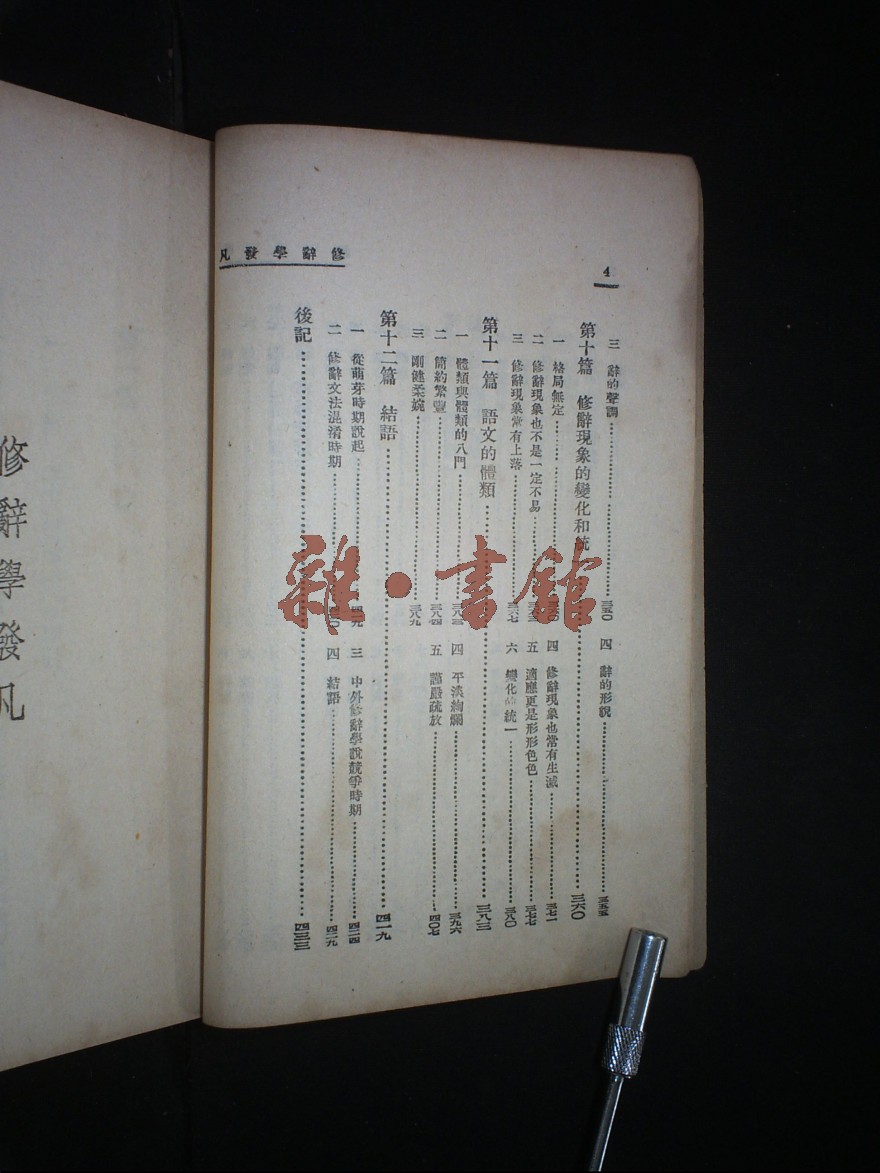 修辭學發凡
4
三 辭的聲調 四 辭的形貌
第十篇 修辭現象的變化和統 三六〇
一 格局無定 四 修辭現象也常有生滅 三七一
二 修辭現象也不是一定不易 五 適應更是形形色色 三七七
三 修辭現象常有上落 六 變化的統一 三八〇
第十一篇 語文的體類 三八三
一 體類與體類的八門 三八三 四 平淡絢爛 三九六
二 簡約繁豐 三八四 五 謹嚴疏放 四〇七
三 剛健柔婉 三八九
第十二篇 結語 四一九
一 從萌芽時期說起 四一九 三 中外修辭學說競爭時期 四二四
二 修辭文法混淆時期 四 結語 四二九
後記 四三三
修辭學發凡
雜·書館